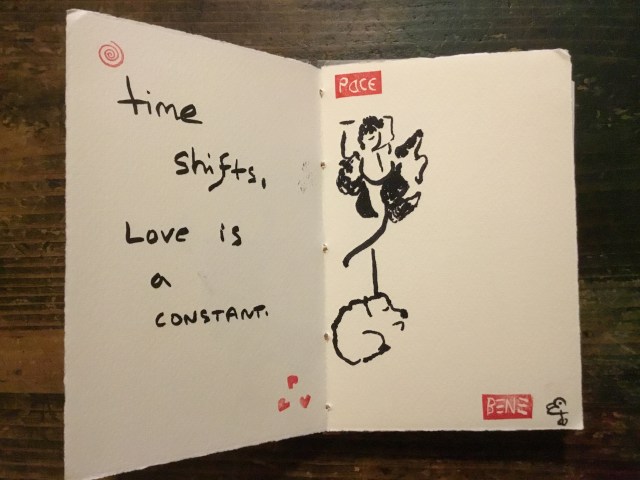 time
shifts,
Love is
a
CONSTANT.
PACE
BENE